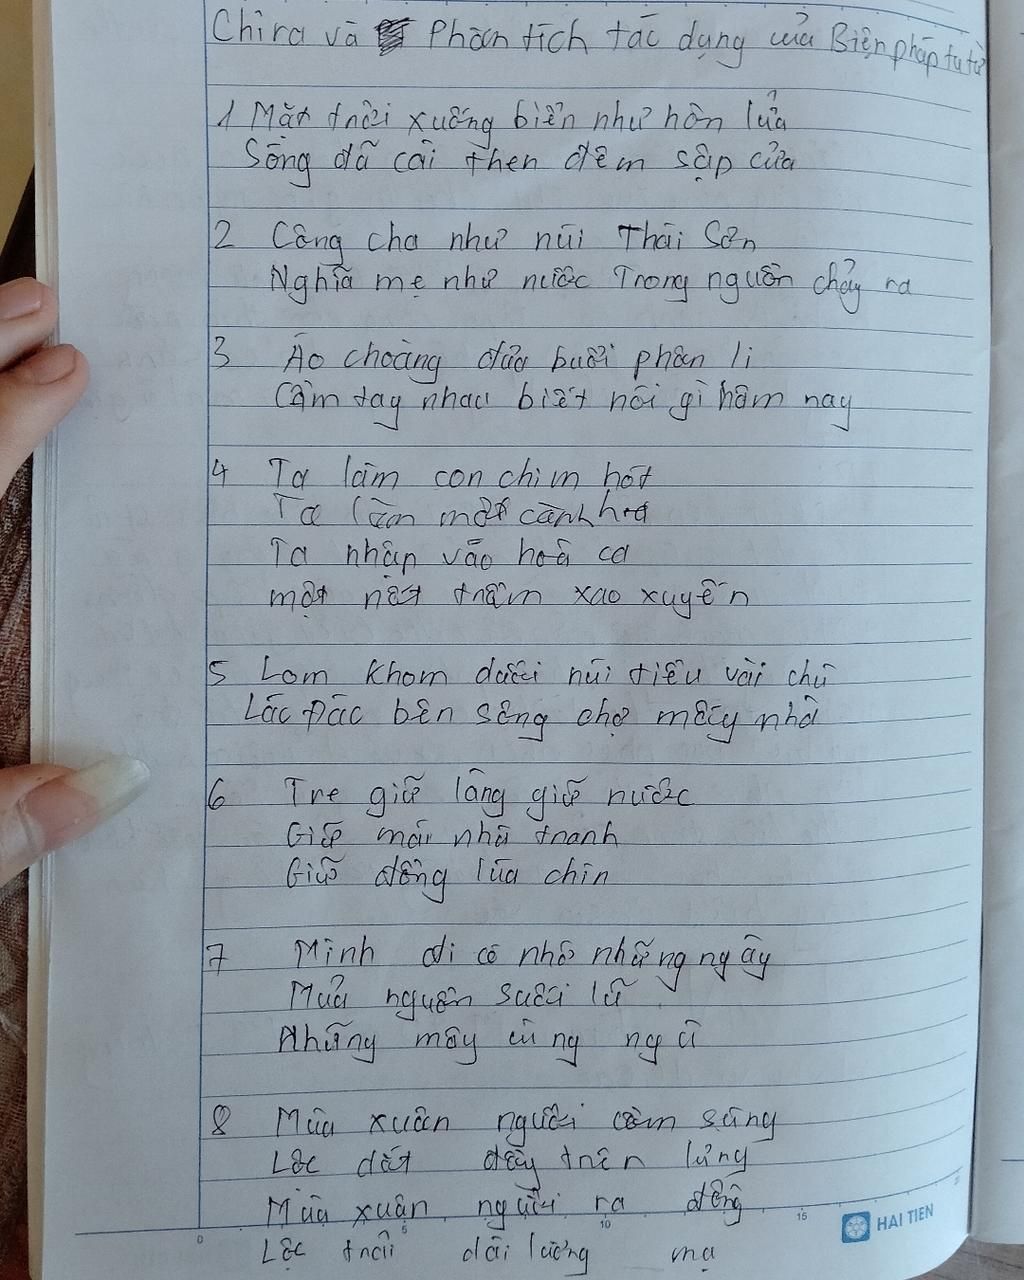 Chỉ ra và Phân tích tác dụng của Biện pháp tu từ
1 Mặt trời xuống biển như hòn lửa
Sóng đã cài then đêm sập cửa
2 Công cha như núi Thái Sơn
Nghĩa mẹ như nước Trong nguồn chảy ra
3 Áo choàng đưa buổi phân li
Cầm tay nhau biết nói gì hôm nay
4 Ta làm con chim hót
Ta làm một cành hoa
Ta nhập vào hoà ca
một nốt trầm xao xuyến
5 Lom khom dưới núi tiều vài chú
Lác Đác bên sông chợ mấy nhà
6 Tre giữ làng giữ nước
Giữ mái nhà tranh
Giữ đồng lúa chín
7 Mình đi có nhớ những ngày
Mưa nguồn suối lũ
Những mây cùng mù
8 Mùa xuân người cầm súng
Lộc dắt đầy trên lưng
Mùa xuân người ra đồng
Lộc trải dài lương mạ
0 5 10 15
HẢI TIẾN